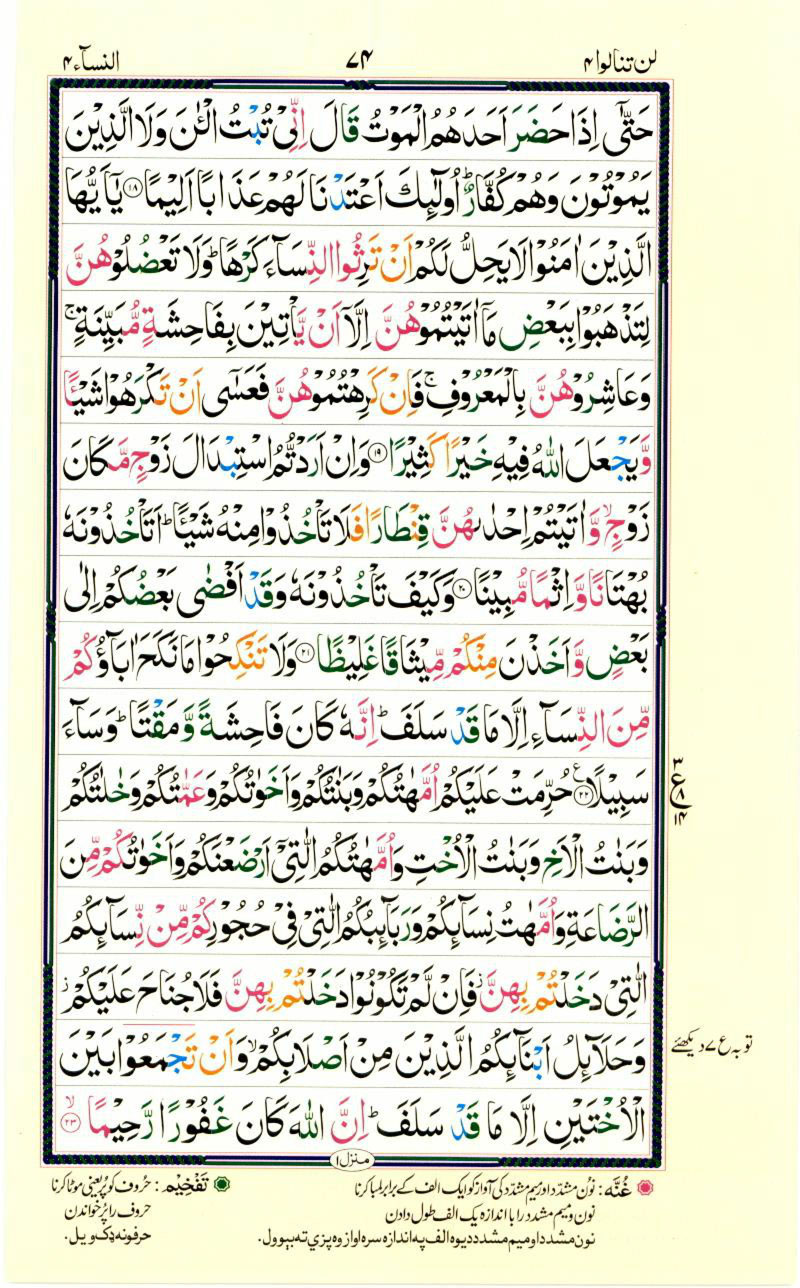 لن تنالوا ۴
۷۴
النسآء ۴
حَتّٰۤی اِذَا حَضَرَ اَحَدَهُمُ الْمَوْتُ قَالَ اِنِّیْ تُبْتُ الْـٰٔنَ وَلَا الَّذِیْنَ
یَمُوْتُوْنَ وَهُمْ كُفَّارٌ ؕ اُولٰٓئِكَ اَعْتَدْنَا لَهُمْ عَذَابًا اَلِیْمًا ﴿۱۸﴾ یٰۤاَیُّهَا
الَّذِیْنَ اٰمَنُوْا لَا یَحِلُّ لَكُمْ اَنْ تَرِثُوا النِّسَآءَ كَرْهًا ؕ وَلَا تَعْضُلُوْهُنَّ
لِتَذْهَبُوْا بِبَعْضِ مَاۤ اٰتَیْتُمُوْهُنَّ اِلَّاۤ اَنْ یَّاْتِیْنَ بِفَاحِشَةٍ مُّبَیِّنَةٍ ۚ
وَعَاشِرُوْهُنَّ بِالْمَعْرُوْفِ ۚ فَاِنْ كَرِهْتُمُوْهُنَّ فَعَسٰۤی اَنْ تَكْرَهُوْا شَیْـًٔا
وَّیَجْعَلَ اللّٰهُ فِیْهِ خَیْرًا كَثِیْرًا ﴿۱۹﴾ وَاِنْ اَرَدْتُّمُ اسْتِبْدَالَ زَوْجٍ مَّكَانَ
زَوْجٍ ۙ وَّاٰتَیْتُمْ اِحْدٰىهُنَّ قِنْطَارًا فَلَا تَاْخُذُوْا مِنْهُ شَیْـًٔا ؕ اَتَاْخُذُوْنَهٗ
بُهْتَانًا وَّاِثْمًا مُّبِیْنًا ﴿۲۰﴾ وَكَیْفَ تَاْخُذُوْنَهٗ وَقَدْ اَفْضٰی بَعْضُكُمْ اِلٰی
بَعْضٍ وَّاَخَذْنَ مِنْكُمْ مِّیْثَاقًا غَلِیْظًا ﴿۲۱﴾ وَلَا تَنْكِحُوْا مَا نَكَحَ اٰبَآؤُكُمْ
مِّنَ النِّسَآءِ اِلَّا مَا قَدْ سَلَفَ ؕ اِنَّهٗ كَانَ فَاحِشَةً وَّمَقْتًا ؕ وَسَآءَ
سَبِیْلًا ﴿۲۲﴾ حُرِّمَتْ عَلَیْكُمْ اُمَّهٰتُكُمْ وَبَنٰتُكُمْ وَاَخَوٰتُكُمْ وَعَمّٰتُكُمْ وَخٰلٰتُكُمْ
۳
ع
۸
۱۴
وَبَنٰتُ الْاَخِ وَبَنٰتُ الْاُخْتِ وَاُمَّهٰتُكُمُ الّٰتِیْۤ اَرْضَعْنَكُمْ وَاَخَوٰتُكُمْ مِّنَ
الرَّضَاعَةِ وَاُمَّهٰتُ نِسَآئِكُمْ وَرَبَآئِبُكُمُ الّٰتِیْ فِیْ حُجُوْرِكُمْ مِّنْ نِّسَآئِكُمُ
الّٰتِیْ دَخَلْتُمْ بِهِنَّ ؗ فَاِنْ لَّمْ تَكُوْنُوْا دَخَلْتُمْ بِهِنَّ فَلَا جُنَاحَ عَلَیْكُمْ ؗ
وَحَلَآئِلُ اَبْنَآئِكُمُ الَّذِیْنَ مِنْ اَصْلَابِكُمْ ۙ وَاَنْ تَجْمَعُوْا بَیْنَ
توبہ ع ۷ دیکھئے
الْاُخْتَیْنِ اِلَّا مَا قَدْ سَلَفَ ؕ اِنَّ اللّٰهَ كَانَ غَفُوْرًا رَّحِیْمًا ۙ﴿۲۳﴾
منزل ۱
غُنَّہ: نون مشدد اور میم مشدد کی آواز کو ایک الف کے برابر لمبا کرنا
نون و میم مشدد را با اندازہ یک الف طول دادن
نون مشدد او میم مشدد دیوه الف په اندازه سره اواز وه پزې ته بېوول.
تَفْخِیْم: حروف کو پُر یعنی موٹا کرنا
حروف را پُر خواندن
حرفونه ډک ویل.